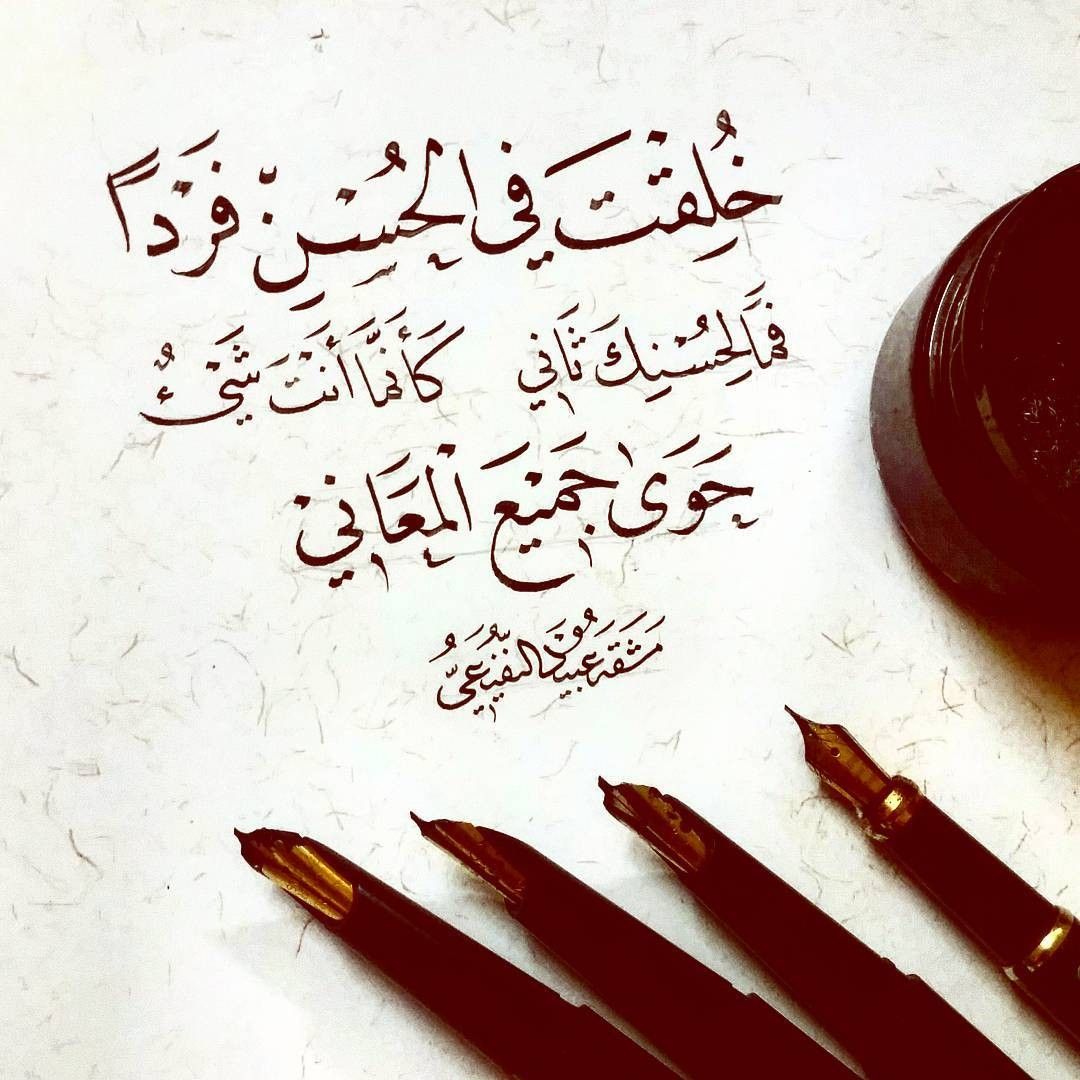 خُلِقْتَ في الحُسْنِ فَرْداً
فَمَا لِحُسْنِكَ ثَاني كَأَنَّمَا أَنْتَ شَيْءٌ
حَوَى جَمِيْعَ الْمَعَانيْ
مَشَقَهُ عَبيدُ النفيعيُّ